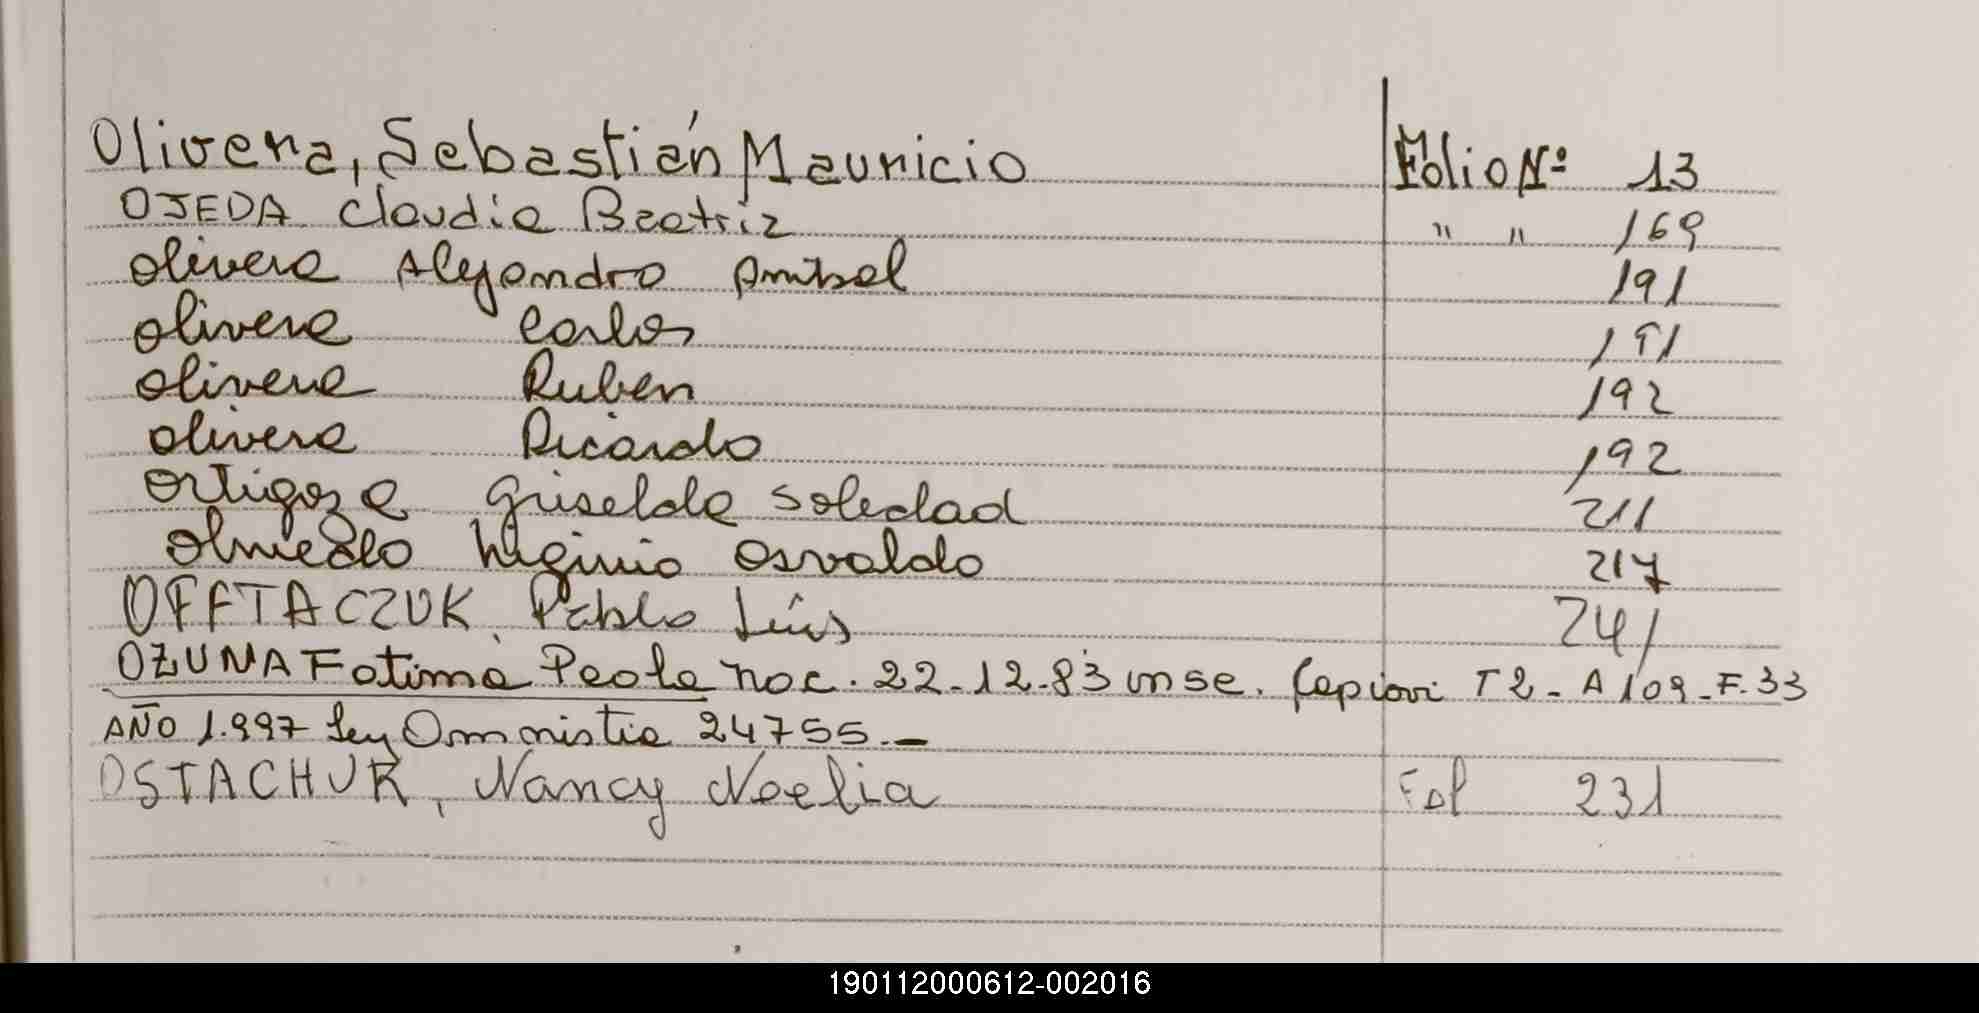 Olivera, Sebastián Mauricio Folio Nº 13
OJEDA Claudia Beatriz " " 169
olivera Alejandro Anibal 191
olivera Carlos 191
olivera Ruben 192
olivera Ricardo 192
ortigoza Griselda Soledad 211
olmedo higinio osvaldo 217
OFFTACZUK, Pablo Luís 241
OZUNA Fatima Paola nac. 22-12-83 inse. Capiovi T2- A 109-F.33
AÑO 1.997 Ley Omnistia 24755.-
OSTACHUK, Nancy Noelia Fol 231
190112000612-002016